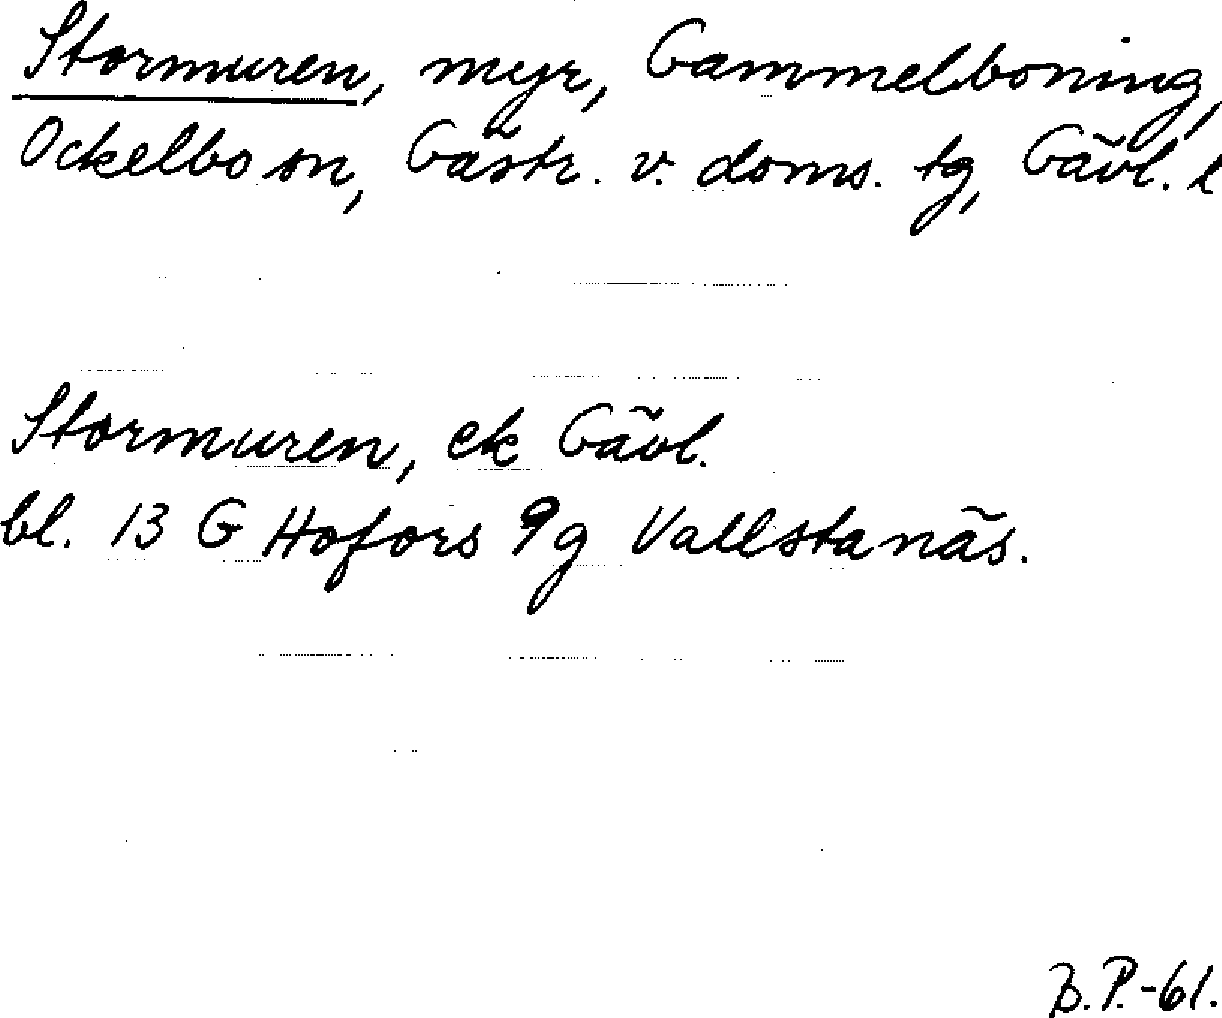 Stormuren, myr, Gammelboning,
Ockelbo sn, Gästr. v. doms. tg, Gävl. l
Stormuren, ek Gävl.
bl. 13 G Hofors 9g Vallstanäs.
B.P.-61.